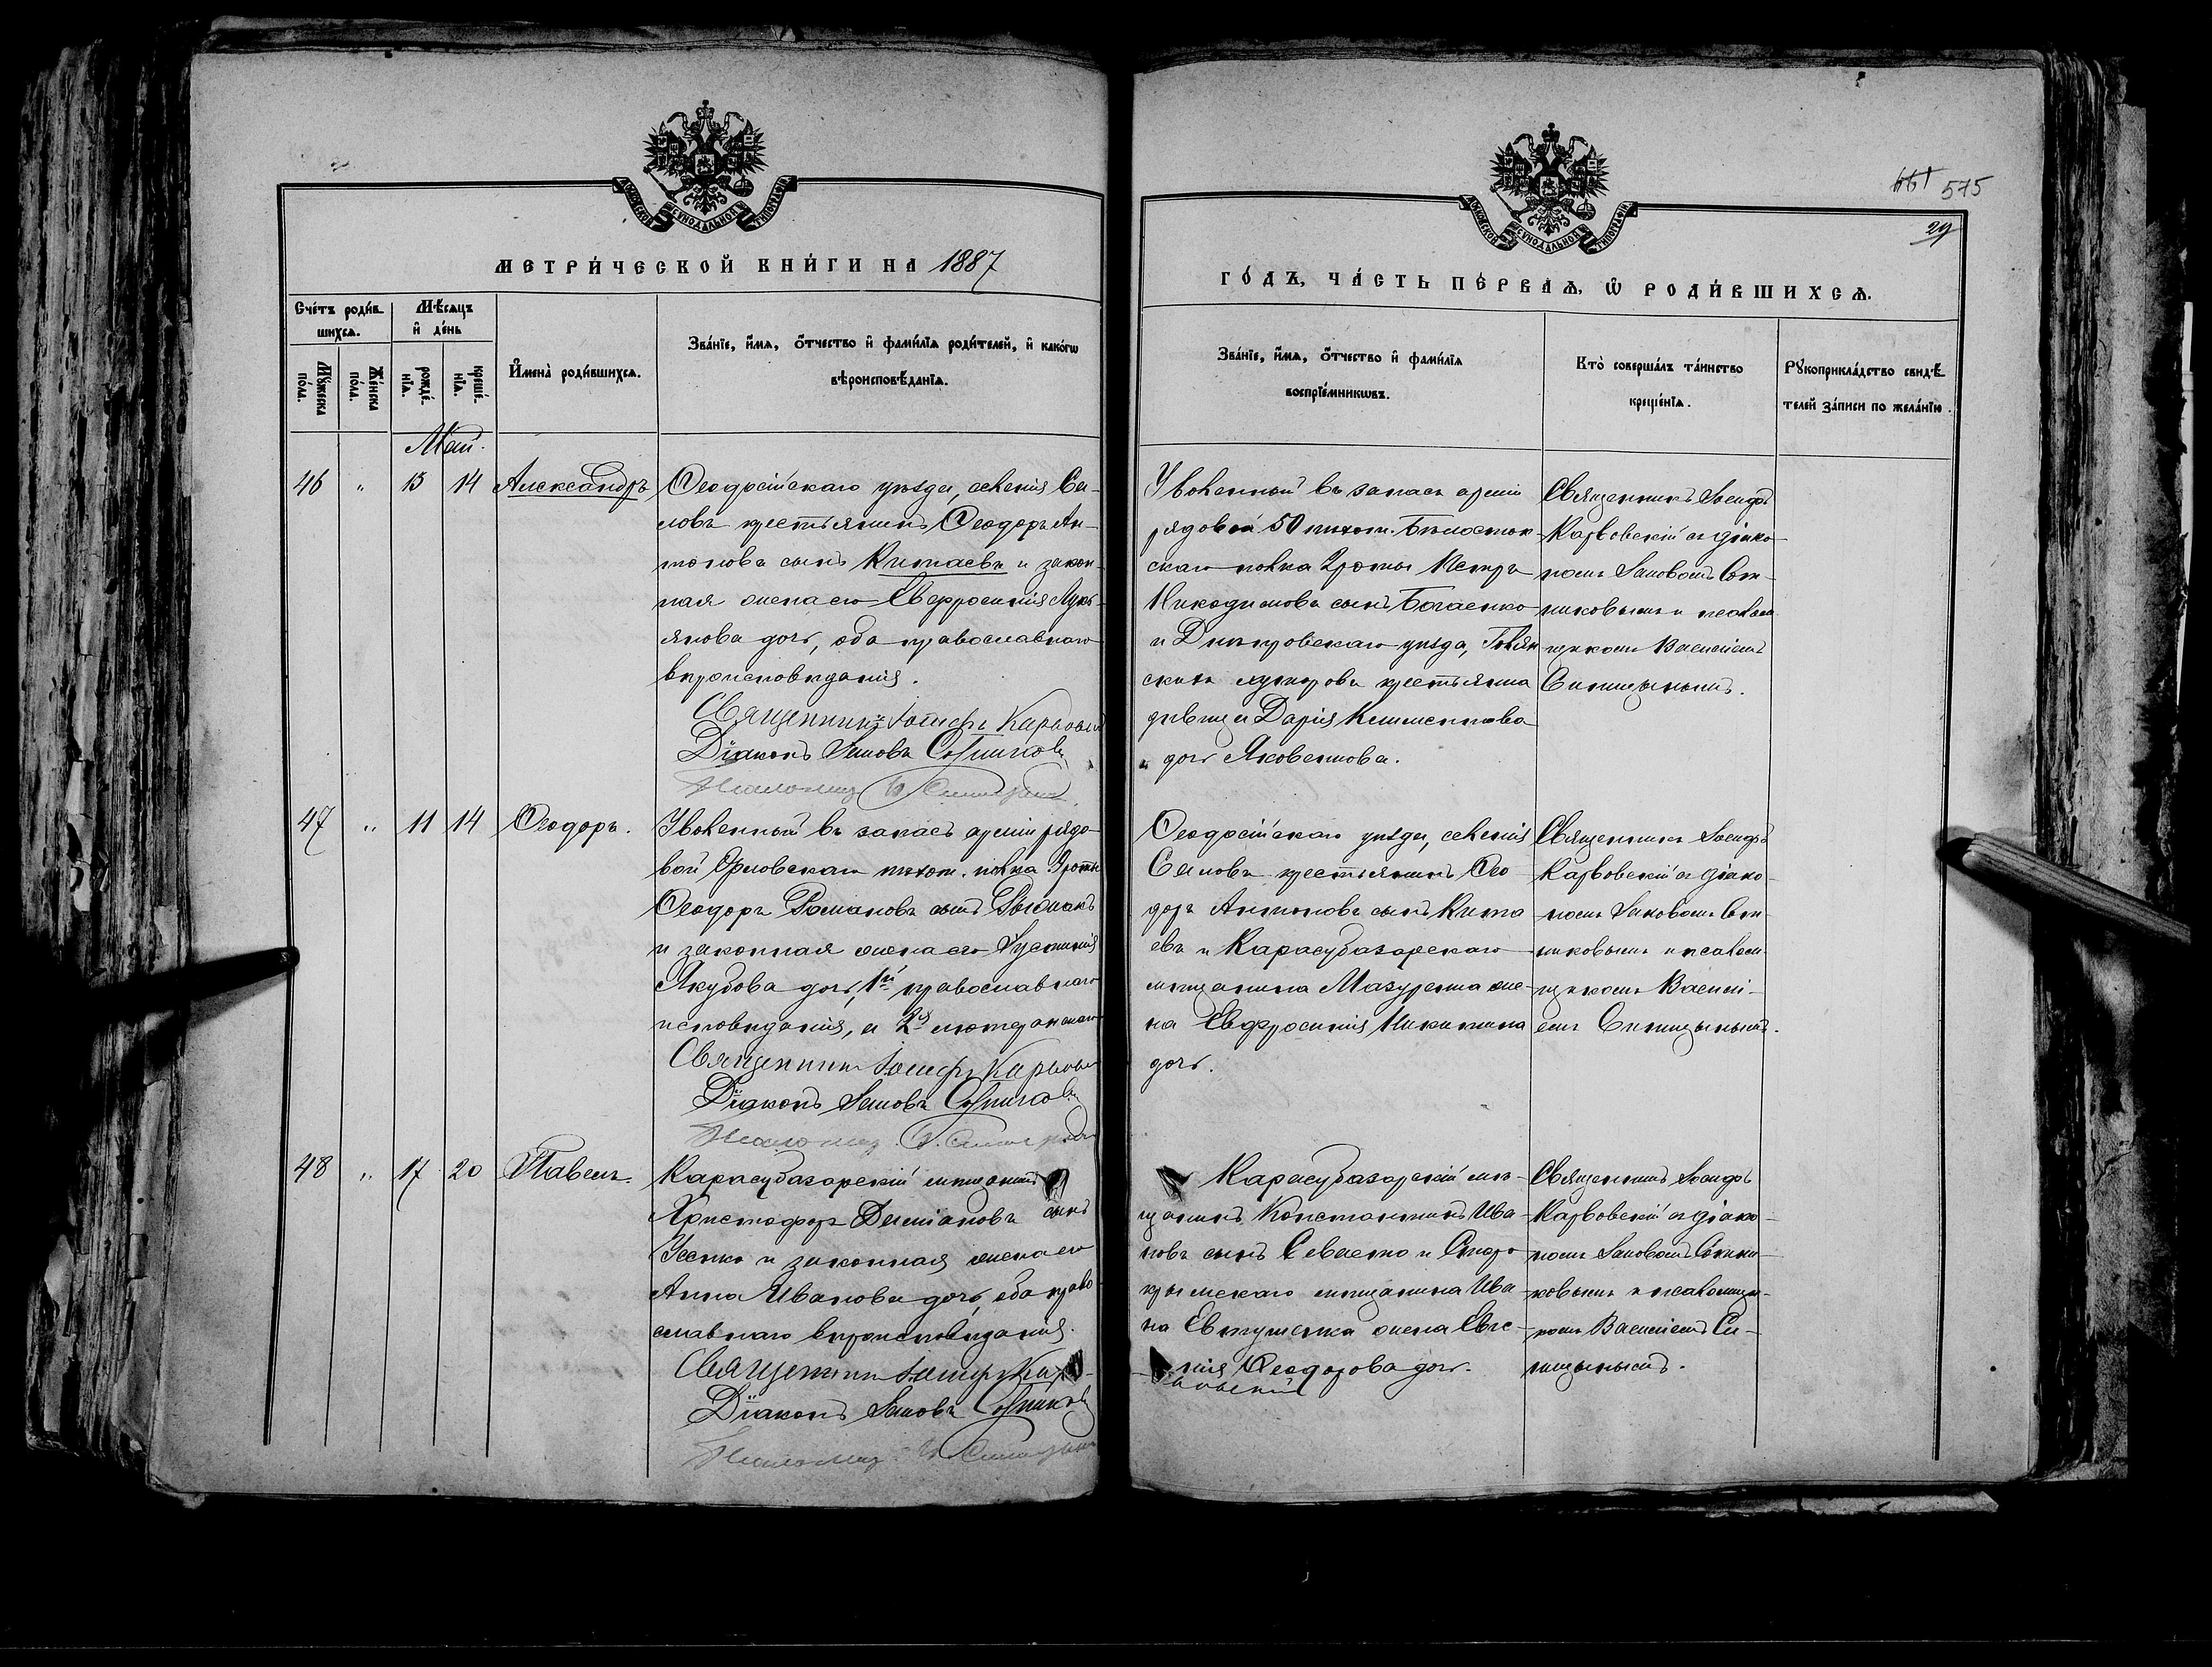 МОСКОВСКОЙ СѴНОДАЛЬНОЙ ТИПОГРАФІИ
МЕТРИ́ЧЕСКОЙ КНИ́ГИ НА 1887
Сче́тъ роди́в-
шихсѧ.
Мѣ́сѧцъ
и҆ де́нь
Мꙋ́жеска
по́ла.
Же́нска
по́ла.
рожде́-
нїѧ.
креще́-
нїѧ.
И҆мена̀ роди́вшихсѧ.
Зва́нїе, и҆́мѧ, ѻ҆́тчество и҆ фами́лїѧ роди́телей, и҆ како́гѡ
вѣроисповѣ́данїѧ.
Май.
46 " 13 14 Александръ
Ѳеодосійскаго уѣзда, селенія Са-
ловъ крестьянинъ Ѳеодоръ Ан-
тоновъ сынъ Китаевъ и закон-
ная жена его Евфросинія Лукь-
янова дочь, оба православнаго
вѣроисповѣданія.
Священникъ Іосифъ Карвовскій
Діаконъ Іаковъ Сотниковъ
Псаломщ. В. Синицынъ
47 " 11 14 Ѳеодоръ.
Уволенный въ запасъ арміи рядо-
вой Орловскаго пѣхот. полка роты
Ѳеодоръ Романовъ сынъ
и законная жена его Іустинія
Якубова дочь, 1й православнаго
исповѣданія, а 2я лютеранскаго
Священникъ Іосифъ Карвовс
Діаконъ Іаковъ Сотниковъ
Псаломщ. В. Синицынъ
48 " 17 20 Павелъ.
Карасубазарскій мѣщанинъ
Христофоръ Даміановъ сынъ
Усенко и законная жена его
Анна Иванова дочь, оба право-
славнаго вѣроисповѣданія.
Священникъ Іосифъ Кар-
Діаконъ Іаковъ Сотниковъ
Псаломщ. В. Синицынъ
575
29
МОСКОВСКОЙ СѴНОДАЛЬНОЙ ТИПОГРАФІИ
ГО́ДЪ, ЧА́СТЬ ПЕ́РВАѦ, Ѡ҆ РОДИ́ВШИХСѦ.
Зва́нїе, и҆́мѧ, ѻ҆́тчество и҆ фами́лїѧ
воспрїе́мникѡвъ.
Кто̀ соверша́лъ та́инство
креще́нїѧ.
Рꙋкоприкла́дство свидѣ́-
телей за́писи по жела́нїю.
Уволенный въ запасъ арміи
рядовой 50 пѣхот. Бѣлосток-
скаго полка 2 роты Петръ
Никодимовъ сынъ Богаенко
и Днѣпровскаго уѣзда,
скихъ хуторовъ крестьянка
дѣвица Дарія Климентова
дочь Яковенкова.
Священникъ Іосифъ
Карвовскій съ діако-
номъ Іаковомъ Сот-
никовымъ и псалом-
щикомъ Василіемъ
Синицынымъ.
Ѳеодосійскаго уѣзда, селенія
Саловъ крестьянинъ Ѳео-
доръ Антоновъ сынъ Кита-
евъ и Карасубазарскаго
мѣщанина Мазуренка же-
на Евфросинія Никитина
дочь.
Священникъ Іосифъ
Карвовскій съ діако-
номъ Іаковомъ Сот-
никовымъ и псалом-
щикомъ Василі-
емъ Синицынымъ.
Карасубазарскій мѣ-
щанинъ Константинъ Ива-
новъ сынъ Севасто и Старо-
крымскаго мѣщанина Ива-
на Евтушенка жена Евге-
нія Ѳеодорова дочь.
вовскій
Священникъ Іосифъ
Карвовскій съ діако-
номъ Іаковомъ Сотни-
ковымъ и псаломщи-
комъ Василіемъ Си-
ницынымъ.